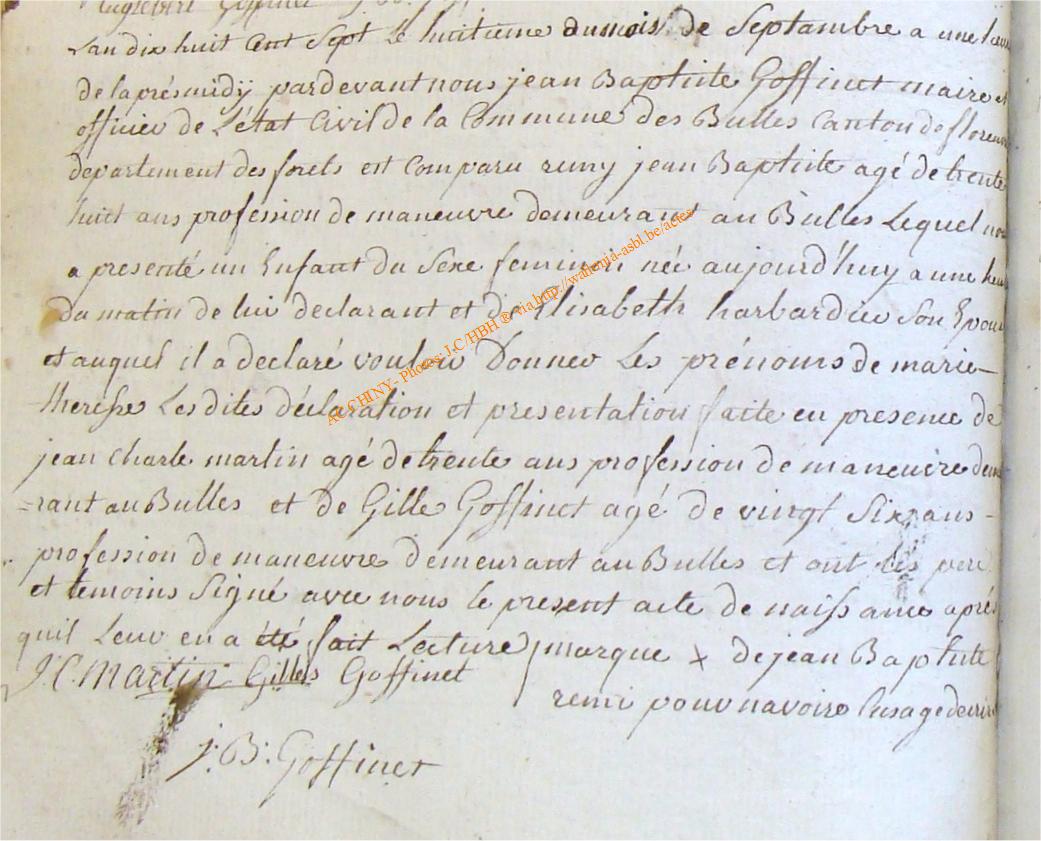 Englebert Goffinet
Lan dix huit cent Sept Le huitieme du mois de Septambre a une heure
de laprésmidÿ pardevant nous jean Baptiste Goffinet maire et
officier de L'état Civil de la Commune des Bulles Canton de florenv
departement des forets est Comparu remy jean Baptiste agé de trente
huit ans profession de maneuvre demeurant au Bulles Lequel nous
a presenté un Enfant du Sexe feminin née aujourd'huy a une heure
du matin de lui declarant et de Elisabeth harbardie Son Epouse
et auquel il a declaré vouloir Donner Les prénoms de marie-
therese Les dites déclaration et presentation faite en presence de
jean Charle martin agé de trente ans profession de maneuvre demu
=rant au Bulles et de Gille Goffinet agé de vingt Six ans -
profession de maneuvre demeurant au Bulles et ont les pere
et temoins Signé avec nous le present acte de naissance aprés
quil Leur en a été fait Lecture / marque x de jean Baptiste
J.C. Martin Gilles Goffinet
remi pour navoire lusage decrire
j: B: Goffinet
AC CHINY- Photos: J.C/HBH ® via http://wallonia-asbl.be/actes